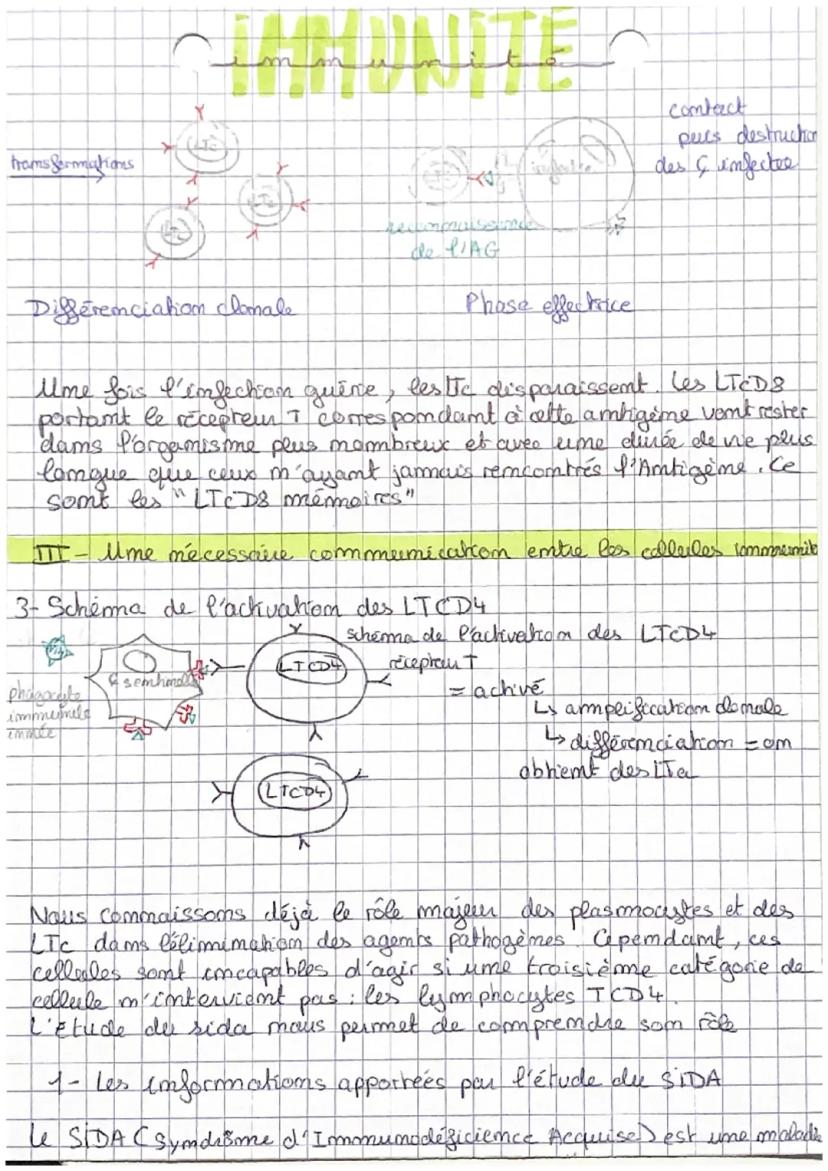 IMMUNITÉ
immunité
transformations
LTc
LTc
LTc
LTc
infectée
reconnaissance
de l'AG
contact
puis destruction
des ç infectée
Différenciation clonale
Phase effectrice
Une fois l'infection guérie, les LTc disparaissent. Les LTCD8
portant le récepteur T correspondant à cette antigène vont rester
dans l'organisme plus nombreux et avec une durée de vie plus
longue que ceux n'ayant jamais remcontrés l'Antigène. Ce
sont les "LTCD8 mémoires"
III - Une nécessaire communication entre les cellules immunit
3- Schéma de l'activation des LTCD4
schéma de l'activation des LTCD4
phagocyte
immunité
innée
ç sentinelle
LTCD4
récepteur T
= activé
↳ amplification clonale
↳ différenciation = on
obtient des LTa
LTCD4
Nous connaissons déjà le rôle majeur des plasmocytes et des
LTc dans l'élimination des agents pathogènes. Cependant, ces
cellules sont incapables d'agir si une troisième catégorie de
cellule n'intervient pas : les lymphocytes TCD4.
L'étude du sida nous permet de comprendre son rôle
1- Les informations apportées par l'étude du SIDA
Le SIDA (Syndrôme d'Immunodéficience Acquise) est une maladie